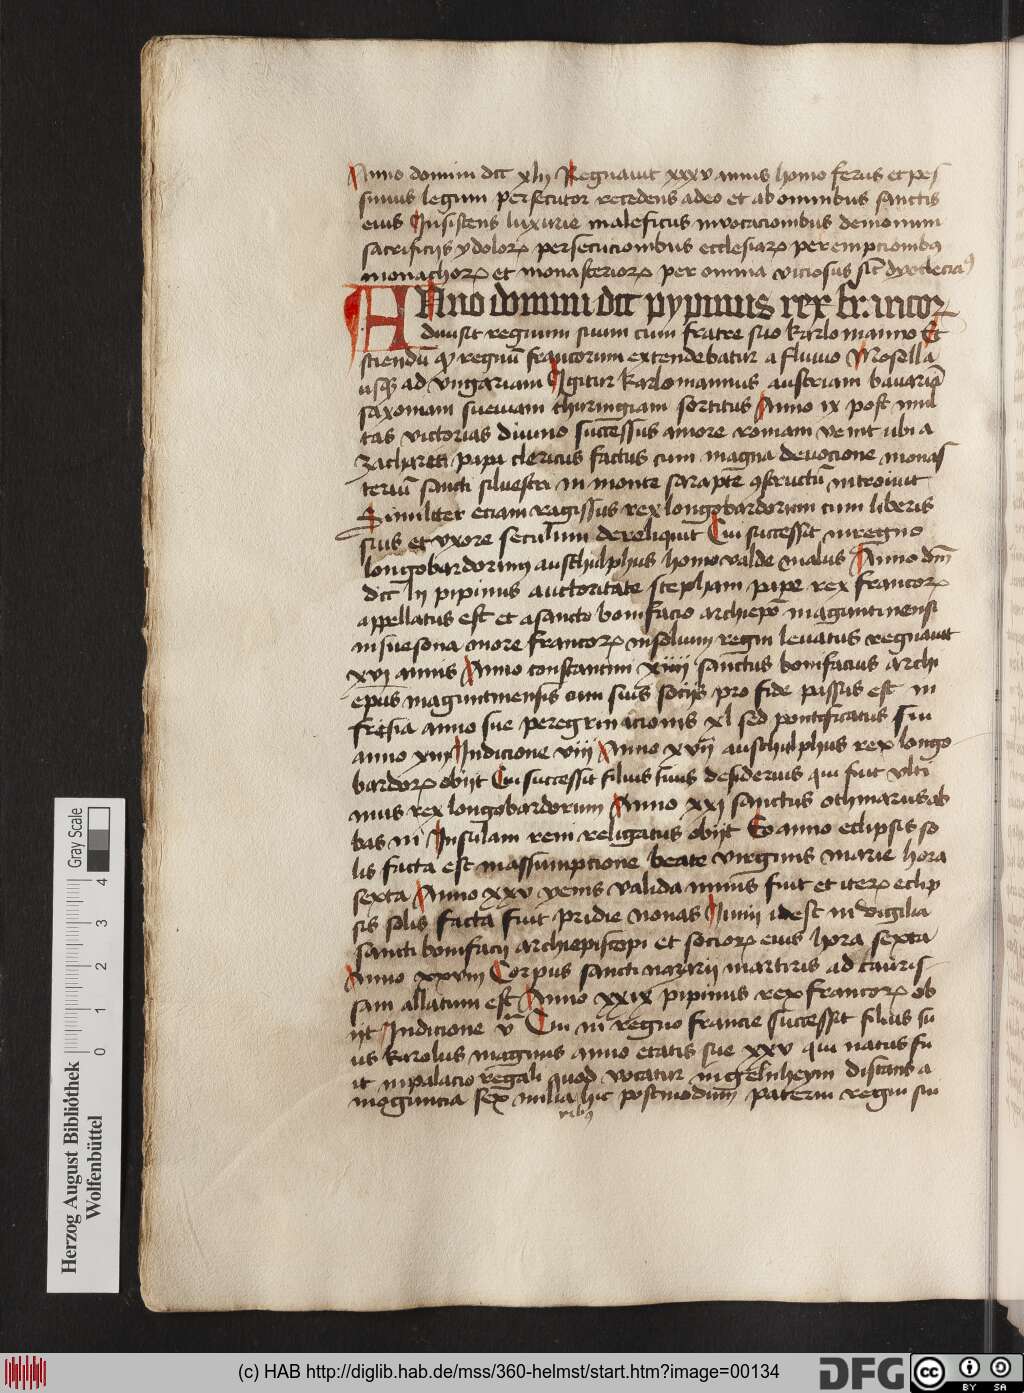 Anno domini dcc xlij Regnauit xxxv annis homo ferus et pes
simus legum persecutor recedens a deo et ab omnibus sanctis
eius Insistens luxurie maleficus invocacionibus demonum
sacrificijs ydolorꝝ persecucionibus ecclesiarꝝ perempcionibꝫ
monachorꝝ et monasteriorꝝ per omnia viciosus
Anno domini dcc pypinus rex francorꝝ
diuisit regnum suum cum fratre suo karlomanno Et
sciendū regnū francorum extendebatur a fluuio Mosella
usqꝫ ad vngariam Igitur karlomannus austriam bauariā
saxoniam sueuiam thuringiam sortitus Anno ix post mul
tas victorias diuino succēssus amore romam venit ubi a
zacharia papa clericus factus cum magna deuocione monas
teriū sancti siluestri in monte sarapte ꝯstructū introiuit
Similiter eciam ragissus rex longobardorum cum liberis
suis et vxore seculum dereliquit Cui successit in regno
longobardorum austhulphus homo valde malus Anno dm̄
dcc lij pipinus auctoritate stephani pape rex francorꝝ
appellatus est et a sancto bonifacio archiepō maguntinensi
in suesona more francorꝝ in solium regni leuatus regnauit
xvi annis Anno constantini xiiij sanctus bonifacius archi
epūs maguntinensis cum suis socijs pro fide passus est in
frisia anno sue peregrinacionis xl sed pontificatus sui
anno xiij Indicione viij Anno xvij austhulphus rex longo
bardorꝝ obijt Cui successit filius suus desiderius qui fuit vlti
mus rex longobardorum Anno xxi sanctus othmarus ab
bas in Insulam reni religatus obijt Eo anno eclipsis so
lis facta est in assumpcione beate virginis marie hora
sexta Anno xxv yems valida nimis fuit et iterꝝ eclip
sis solis facta fuit pridie nonas Junij idest in vigilia
sancti bonifacij archiepiscopi et sociorꝝ eius hora sexta
Anno xxviij Corpus sancti nazarij martiris ad lauris
sam allatum est Anno xxix pipinus rex francorꝝ ob
ijt Indicione v Cui in regno francie successit filius su
us karolus magnus anno etatis sue xxv qui natus fu
it in palacio regali quod vocatur ingelnheym distans a
moguncia sex milia hic postmodum paterni regni sui
viribꝫ
Herzog August Bibliothek
Wolfenbüttel
Gray Scale
0 1 2 3 4
(c) HAB http://diglib.hab.de/mss/360-helmst/start.htm?image=00134
DFG
cc BY SA